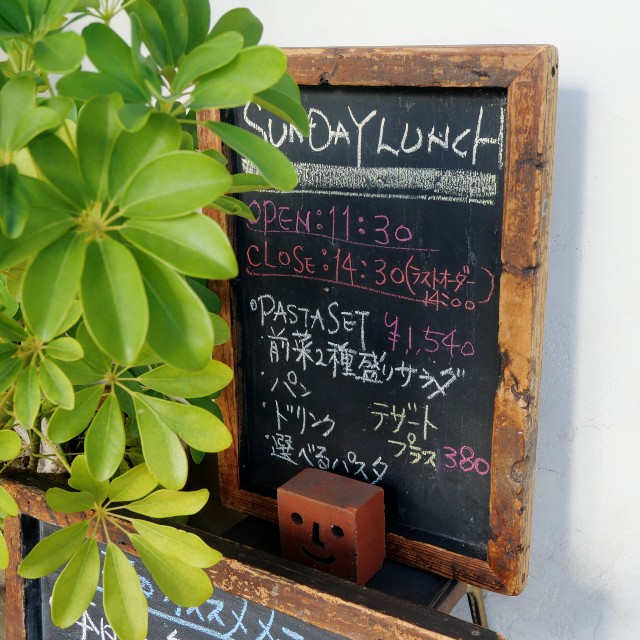 SUNDAY LUNCH
OPEN:11:30
CLOSE:14:30(ラストオーダー
14:00)
PASTA SET ¥1,540
・前菜2種盛りサラダ
・パン
・ドリンク
・選べるパスタ
デザート
プラス380
オススメ